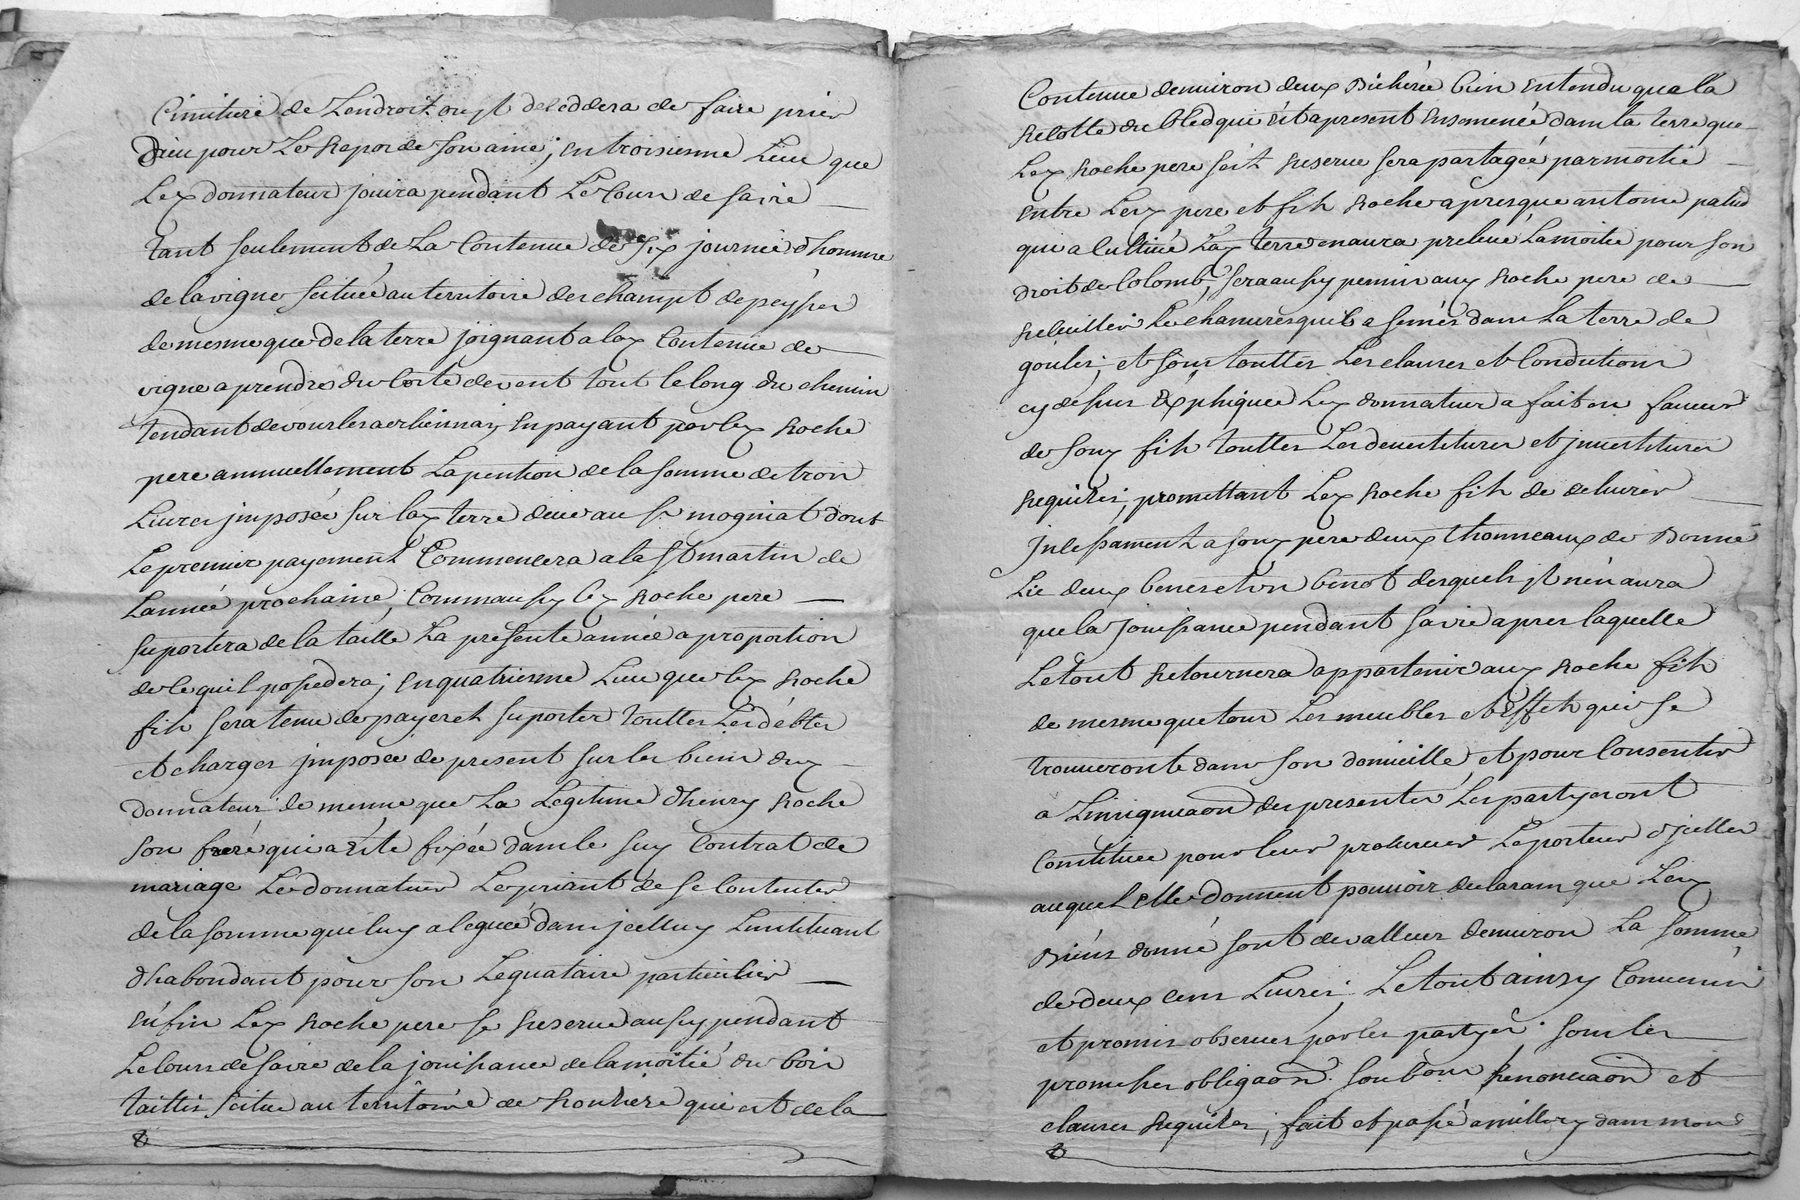 Cimitiere de Lendroit ou jl deceddera de faire prier
Dieu pour Le Repos de son ame; en troisiesme Lieu que
Ley donnateur jouira pendant Le Cours de sa vie
tant seulement de La Contenue de six journée dhomme
de la vigne scituée au territoire des champt de peysser
de mesme que de la terre joignant a lay Contenue de
vigne a prendre du Coste de vent tout le long du chemin
tendant de vourles a erliennay en payant par ley Roche
pere annuellement La pention de la somme de trois
Livres jmposée sur lay terre deue au sr mogniat dont
Le premier payement Commencera a la St martin de
Lannée prochaine, Comm aussy ley Roche pere
suportera de la taille La presente année a proportion
de ce quil possedera; en quatriesme Lieu que ley Roche
fils sera tenu de payer et suporter touttes Les debtes
et charges jmposée de present sur les biens duy
donnateur de mesme que La Legitime dhenry Roche
son frere qui a esté fixée dans le suy Contrat de
mariage Le donnateur Le priant de se Contenter
de la somme que luy a leguée dans jcelluy Linstituant
dhabondant pour son Lequataire particulier
enfin Ley Roche pere se Reserve aussy pendant
Le Cours de sa vie de la jouissance de la moitié du bois
taillis scitue au territoire de Rontiere qui est de la
Contenue denviron deux Bicherée bien entendu que la
Relotte du bled qui est a present ensemencé dans la terre que
Ley Roche pere sest Reserve sera partagée par moitié
entre Ley pere et fils Roche apres que antoine patud
qui a Cultivé Lay terre en aura preleve La moitie pour son
droit de Colomb, sera aussy permis auy Roche pere de
Reluillir Le chanvres quil a semés dans La terre de
goules; et sous touttes Les clauses et Conditions
cy dessus Explique Ley donnateur a fait en faveur
de souy fils touttes Les devestitures et jnvestitures
Requises; promettant Ley Roche fils de delivrer
jncessament a souy pere deux thonneaux de Bonne
Lie deux benes et un benot desquels jl nen aura
que la jouissance pendant sa vie apres laquelle
Le tout Retournera appartenir auy Roche fils
de mesme que tous Les meubles et effets qui se
trouveront dans son domicille et pour Consentir
a Linsignuaon des presentes Les partyes ont
Constitue pour leur procureur Le porteur djcelles
auquel elle donnent pouvoir declarans que Ley
Biens donné sont de valleur denviron La somme
de deux cens Livres; Le tout ainsy Convenu
et promis observer par les partyes sous les
promesses obligaons soubtons Renonciaon et
clauses Requises; fait et passé a millery dans mon